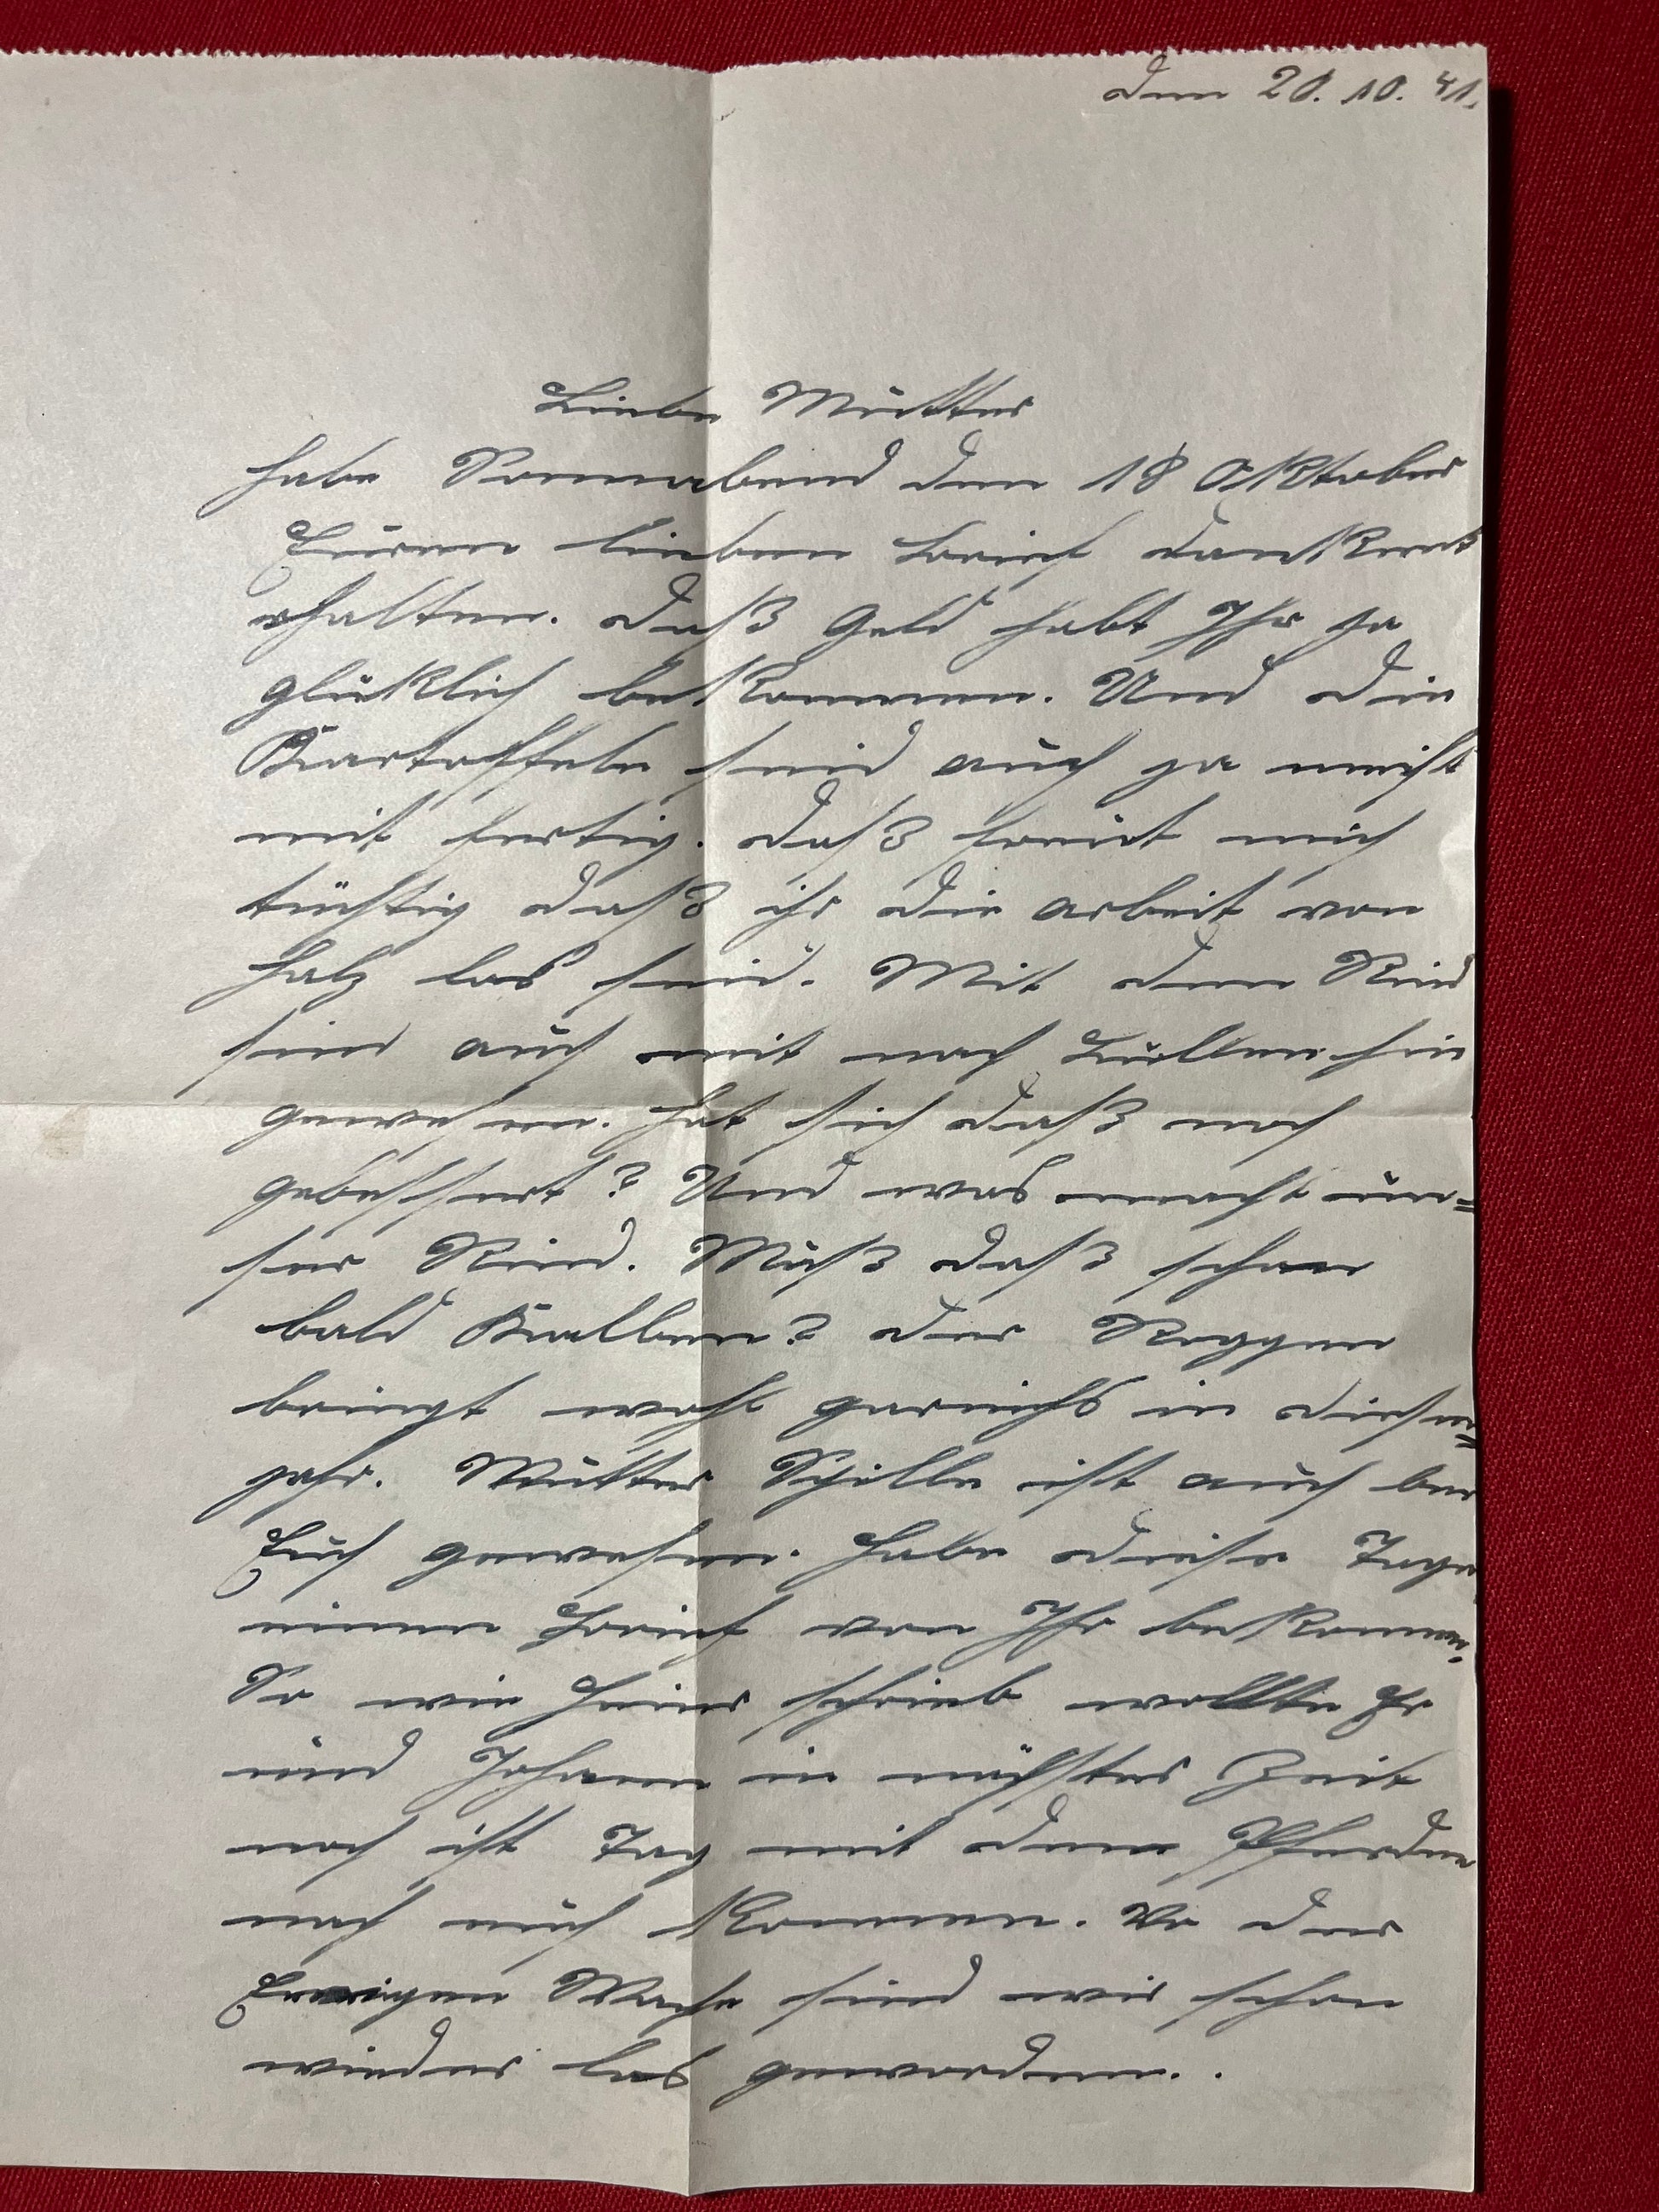 den 20. 10. 41.
Liebe Mutter
habe Sonnabend den 18 Oktober
Euren lieben Brief dankent
erhalten. Daß Geld habt Ihr ja
glüklich bekommen. Und die
Kartoffeln seid auch ja meist
mit fertig. Daß freut mich
tüchtig daß ihr die arbeit von
Halz los seid. Mit den Rind
sind auch mit nach Bullen hin
gewesen. Hat sich daß noch
gebessert? Und was macht un=
ser Rind. Muß daß schon
bald Kalben? Der Roggen
bringt wohl garnichts in diesen=
jahr. Mutter Schille ist auch bei
Euch gewesen. Habe diese Tage
einen Brief von Ihr bekommen.
So wie Heini schrieb wollte Er
und Johann in nächster Zeit
noch ist Tag mit den Pferden
nach euch kommen. Vo der
Ewigen Wache sind wir schon
wieder los geworden..